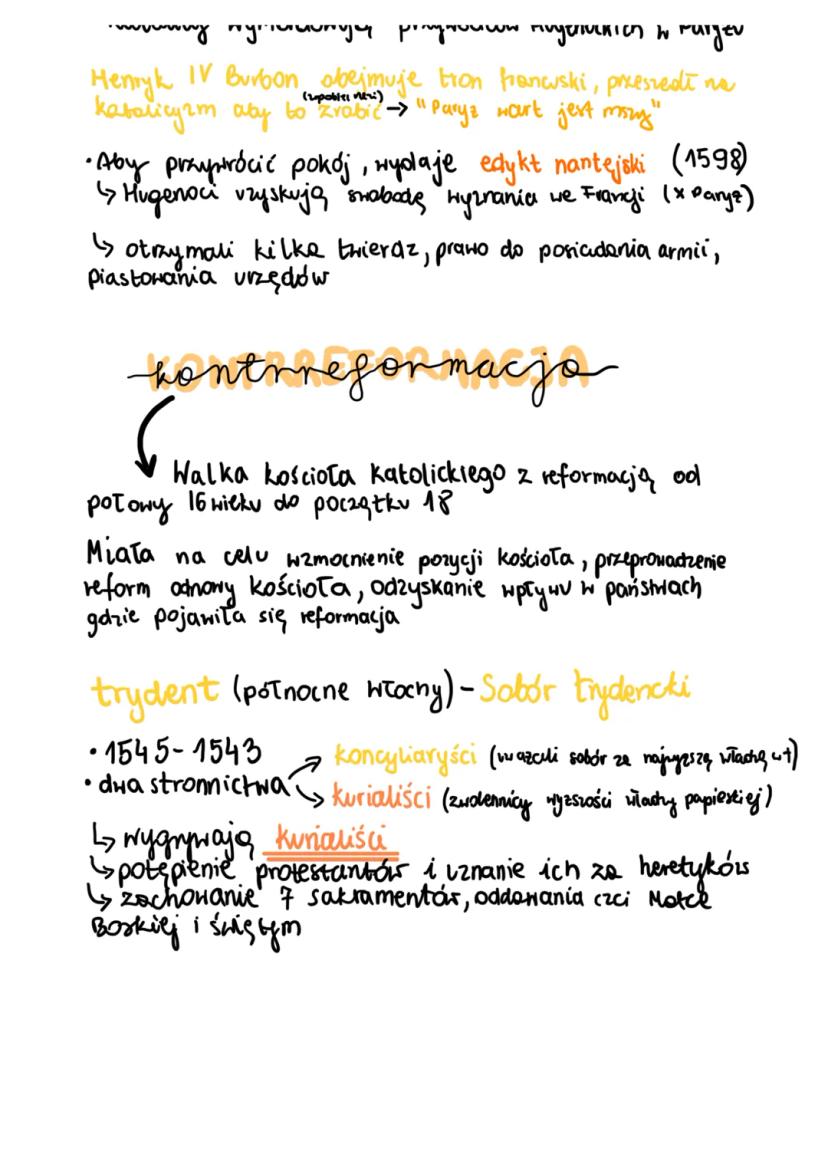 wymordowują przywódców hugenockich w Paryżu
Henryk IV Burbon obejmuje tron francuski, przeszedł na
(zapobiec rzezi)
katolicyzm aby to zrobić → "Paryż wart jest mszy"
• Aby przywrócić pokój, wydaje edykt nantejski (1598)
↳ Hugenoci uzyskują swobodę wyznania we Francji (x Paryż)
↳ otrzymali kilka twierdz, prawo do posiadania armii,
piastowania urzędów
kontrreformacja
Walka kościoła katolickiego z reformacją od
połowy 16 wieku do początku 18
Miała na celu wzmocnienie pozycji kościoła, przeprowadzenie
reform odnowy kościoła, odzyskanie wpływu w państwach
gdzie pojawiła się reformacja
trydent (północne włochy) - Sobór trydencki
• 1545-1543
• dwa stronnictwa
→ koncyliaryści (uważali sobór za najwyższą władzę)
↘ kurialiści (zwolennicy wyższości władzy papieskiej)
↳ wygrywają kurialiści
↳ potępienie protestantów i uznanie ich za heretyków
↳ zachowanie 7 sakramentów, oddawania czci Matce
Boskiej i świętym